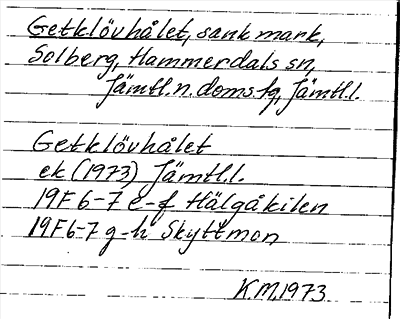 Getklövhålet, sank mark,
Solberg, Hammerdals sn,
Jämtl. n. doms fg, Jämtl. l.
Getklövhålet
ek (1973) Jämtl. l.
19F 6-7 e-f Hälgåkilen
19F 6-7 g-h Skyttmon
K.M. 1973